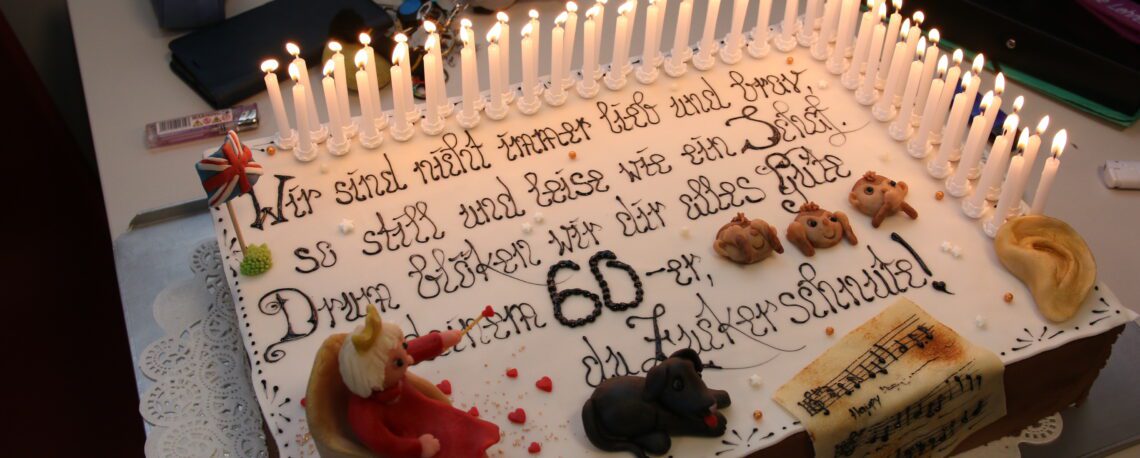 Wir sind nicht immer lieb und brav,
so still und leise wie ein Schaf.
Drum blöken wir dir alles Jute
deinem 60-er,
du Zuckerschnute!
Happy